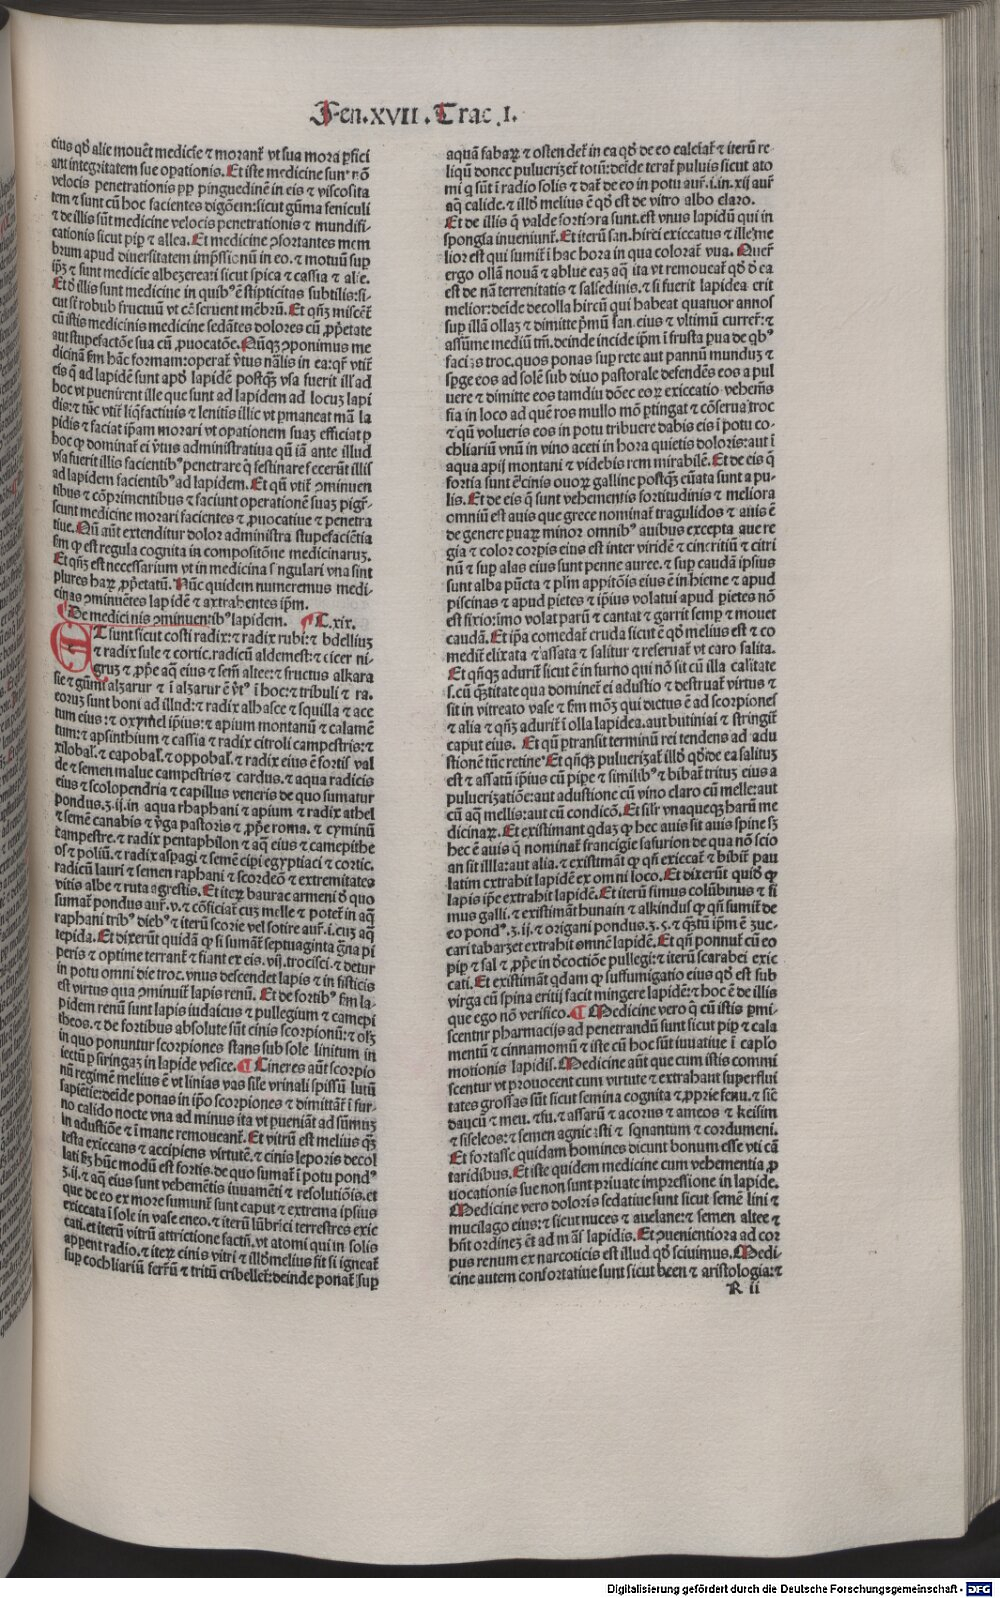 Fen.XVII.Trac.I.
eius qđ alie mouẽt medicĩe ⁊ moranť vt sua mora ꝑfici
ant integritatem sue oꝑationis. Et iste medicine sunt nõ
velocis penetrationis ꝓp pinguedinẽ in eis ⁊ viscosita
tem ⁊ sunt cũ hoc facientes digõem: sicut gũma feniculi
⁊ de illis sũt medicine velocis penetrationis ⁊ mundifi-
cationis sicut pip ⁊ allea. Et medicine ɔfortantes mem
brum apud diuersitatem impssionũ in eo. ⁊ motuũ suꝑ
ipz ⁊ sunt medicĩe albezereari sicut spica ⁊ cassia ⁊ alie.
Et đ illis sunt medicine in quibꝰ ẽ stipticitas subtilis: si-
cut sĩ robub fructuũ vt cõseruent mẽbrũ. Et qñqȝ miscẽt
cũ istis medicinis medicine sedãtes dolores cũ ꝓpetate
aut stupefactõe sua cũ ꝓuocatõe. Nũqȝ ɔponimus me
dicinã fm hãc formam: oꝑať ṽtus nãlis in ea: qr vtiť
eis q̃ ad lapidẽ sunt apđ lapidẽ postqȝ vsa fuerit ill ad
hoc vt ꝑuenirent ille que sunt ad lapidem ad locuȝ lapi
dis: ⁊ tũc vtiť liqfactinis ⁊ lenitis illic vt ꝑmaneat mã la
pidis ⁊ faciat ipam morari vt oꝑationem suaȝ efficiat ꝑ
hoc ꝙ dominať ei ṽtus administratiua qũ iã ante illud
vsa fuerit illis facientibꝰ penetrare q̃ festinare fecerũt illis
ad lapidem facientibꝰ ad lapidem. Et qũ vtiť ɔminuen
tibus ⁊ cõprimentibus ⁊ faciunt oꝑationẽ suaȝ pigr-
scunt medicine morari facientes ⁊ ꝓuocatiue ⁊ penetra
tiue. Qũ aũt extenditur dolor administra stupefaciẽtia
fm ꝙ est regula cognita in compositõne medicinaruȝ.
Et qñȝ est necessarium vt in medicina singulari vna sint
plures haꝝ ꝓpetatũ. Nũc quidem numeremus medi-
cinas ɔminuẽtes lapidẽ ⁊ axtrahentes ipm.
¶ De medicinis ɔminuentibꝰ lapidem. ¶ C.xix.
ET sunt sicut costi radix: ⁊ radix rubi: ⁊ bdelliuȝ
⁊ radix sule ⁊ cortic. radicũ aldemest: ⁊ cicer ni-
gruȝ ⁊ ꝓpe aq̃ eius ⁊ sem̃ altee: ⁊ fructus alkara
sie ⁊ gũmi alzarur ⁊ ĩ alzarur ẽ ṽtꝰ ĩ hoc: ⁊ tribuli ⁊ ra.
eoruȝ sunt boni ad illud: ⁊ radix alhasce ⁊ squilla ⁊ ace
tum eius: ⁊ oxymel ipius: ⁊ apium montanũ ⁊ calamẽ
tum: ⁊ apsinthium ⁊ cassia ⁊ radix citroli campestris: ⁊
xilobal. ⁊ capobal. ⁊ oppobal. ⁊ radix eius ẽ fortis val
de ⁊ semen malue campestris ⁊ cardus. ⁊ aqua radicis
eius ⁊ scolopendria ⁊ capillus veneris de quo sumatur
pondus.ȝ.ij.in aqua rhaphani ⁊ apium ⁊ radix athel
⁊ semẽ canabis ⁊ ṽga pastoris ⁊ ꝓpe roma. ⁊ cyminũ
campestre. ⁊ radix pentaphilon ⁊ aq̃ eius ⁊ camepithe
os ⁊ poliũ. ⁊ radix aspagi ⁊ semẽ cipi egyptiaci ⁊ cortic.
radicũ lauri ⁊ semen raphani ⁊ scordeõ ⁊ extremitates
vitis albe ⁊ ruta agrestis. Et iteꝝ baurac armeni đ quo
sumať pondus aur̃.v. ⁊ cõficiať cuȝ melle ⁊ poteť in aq̃
raphani tribꝰ diebꝰ ⁊ iterũ scorie vel sotire aur̃.i.cuȝ aq̃
tepida. Et dixerũt quidã ꝙ si sumãť septuaginta g̃na pi
peris ⁊ optime terrant ⁊ fiant ex eis.vij.trocisci.⁊ detur
in potu omni die troc.vnus descendet lapis ⁊ in fisticis
est virtus qua ɔminuiť lapis renũ. Et de fortibꝰ fm la-
pidem renũ sunt lapis iudaicus ⁊ pullegium ⁊ camepi
theos. ⁊ de fortibus absolute sũt cinis scorpionũ: ⁊ olȝ
in quo ponuntur scorpiones stans sub sole linitum in
iectũ ꝑ siringaȝ in lapide vesice. ¶ Cineres aũt scorpio
nũ regimẽ melius ẽ vt linias vas sile vrinali spissũ lutũ
sapiẽtie: deide ponas in ipo scorpiones ⁊ dimittãť ĩ fur-
no calido nocte vna ad minus ita vt ꝑueniãt ad sũmuȝ
in adustiõe ⁊ ĩ mane remoueanť. Et vitrũ est melius qȝ
testa exiccans ⁊ accipiens virtutẽ. ⁊ cinis leporis decol
lati fȝ hũc modũ est fortis. de quo sumať ĩ potu pondꝰ
ȝ.ij. ⁊ aq̃ eius sunt vehemẽtis iuuamẽti ⁊ resolutiõis. et
que de eo ex more sumunť caput ⁊ extrema ipsius
exiccata ĩ sole in vase eneo. ⁊ iterũ lũbrici terrestres exic
cati. et iterũ vitrũ attrictione factũ. vt atomi qui in solis
apparent radio. ⁊ iteꝝ cinis vitri ⁊ illđ melius sit si igneať
suꝑ cochliariũ ferrũ ⁊ tritũ cribelleť: deinde ponať suꝑ
aquã fabaꝝ ⁊ ostendeť in ea qđ de eo calciať ⁊ iterũ re-
liqũ donec puluerizeť totũ: deide terať puluis sicut ato
mi q̃ sũt ĩ radio solis ⁊ dať de eo in potu aur̃.i.in.xij aur̃
aq̃ calide. ⁊ illđ melius ẽ qđ est de vitro albo claro.
Et de illis q̃ valde fortiora sunt. est vnus lapidũ qui in
spongia inueniunť. Et iterũ san. hirci exiccatus ⁊ ille me
lior est qui sumiť ĩ hac hora in qua colorať vua. Queř
ergo ollã nouã ⁊ ablue eaȝ aq̃ ita vt remoueať qđ đ ea
est de nã terrenitatis ⁊ salsedinis. ⁊ si fuerit lapidea erit
melior: deide decolla hircũ qui habeat quatuor annos
suꝑ illã ollaȝ ⁊ dimitte pmũ san. eius ⁊ vltimũ curreť: ⁊
assũme mediũ tm̃. deinde incide ipm ĩ frusta pua de qbꝰ
facias troc. quos ponas suꝑ rete aut pannũ mundũȝ ⁊
spge eos ad solẽ sub diuo pastorale defendẽs eos a pul
uere ⁊ dimitte eos tamdiu dõec eoꝝ exiccatio vehemẽs
fia in loco ad quẽ ros mullo mõ ꝑtingat ⁊ cõserua troc
⁊ qũ volueris eos in potu tribuere dabis eis ĩ potu co-
chliariũ vnũ in vino aceti in hora quietis doloris: aut ĩ
aqua apij montani ⁊ videbis rem mirabilẽ. Et de eis q̃
fortia sunt ẽ cinis ouoꝝ galline postqȝ cũata sunt a pu-
lis. Et de eis q̃ sunt vehementis fortitudinis ⁊ meliora
omniũ est auis que grece nominať tragulidos ⁊ auis ẽ
de genere puaꝝ minor omnibꝰ auibus excepta aue re
gia ⁊ color corpis eius est inter viridẽ ⁊ cincritiũ ⁊ citri
nũ ⁊ sup alas eius sunt penne auree. ⁊ sup caudã ipsius
sunt alba pũcta ⁊ plim appitõis eius ẽ in hieme ⁊ apud
piscinas ⁊ apud pietes ⁊ ipius volatui apud pietes nõ
est fixio: imo volat parũ ⁊ cantat ⁊ garrit semp ⁊ mouet
caudã. Et ipa comedať cruda sicut ẽ qđ melius est ⁊ co
mediť elixata ⁊ assata ⁊ salitur ⁊ reseruať vt caro salita.
Et qñqȝ aduriť sicut ẽ in furno qui nõ sit cũ illa caliitate
s. cũ q̃titate qua domineť ei adustio ⁊ destruať virtus ⁊
sit in vitreato vase ⁊ fm modȝ qui dictus ẽ ad scorpiones
⁊ alia ⁊ qñȝ aduriť ĩ olla lapidea. aut butiniai ⁊ stringiť
caput eius. Et qũ ꝑtransit terminũ rei tendens ad adu
stionẽ tũc retine. Et qñqȝ puluerizať illđ qđ de ea salituȝ
est ⁊ assatũ ipius cũ pipe ⁊ similibꝰ ⁊ bibať trituȝ eius a
puluerizatiõe: aut adustione cũ vino claro cũ melle: aut
cũ aq̃ mellis: aut cũ condicõ. Et silr vnaqueqȝ harũ me
dicinaꝝ. Et existimant qdaȝ ꝙ hec auis sit auis spine sȝ
hec ẽ auis q̃ nominať francigie safurion de qua nõ scio
an sit illa: aut alia. ⁊ existimãt ꝙ qñ exiccať ⁊ bibiť pau
latim extrahit lapidẽ ex omni loco. Et dixerũt quidã ꝙ
lapis ipe extrahit lapidẽ. Et iterũ fimus colũbinus ⁊ fi
mus galli. ⁊ existimãt hunain ⁊ alkindus ꝙ qñ sumiť de
eo pondꝰ.ȝ.ij. ⁊ origani pondus.ȝ.ς. ⁊ q̃tũ ipm ẽ zuc-
cari tabarzet extrahit omnẽ lapidẽ. Et qñ ponnuť cũ eo
pip ⁊ sal ⁊ ꝓpe in đcoctiõe pullegi: ⁊ iterũ scarabei exic
cati. Et existimãt qdam ꝙ suffumigatio eius qđ est sub
virga cũ spina eritij facit mingere lapidẽ: ⁊ hoc ẽ de illis
que ego nõ verifico. ¶ Medicine vero q̃ cũ istis pmi-
scentur pharmacijs ad penetrandũ sunt sicut pip ⁊ cala
mentũ ⁊ cinnamomũ ⁊ iste cũ hoc sũt iuuatiue ĩ caplo
motionis lapidis. Medicine aũt que cum istis commi
scentur vt ꝓuocent cum virtute ⁊ extrahant suꝑflui
tates grossas sũt sicut semina cognita ⁊ ꝓprie fenu. ⁊ sic̃
daucũ ⁊ meu. ⁊ fu. ⁊ assarũ ⁊ acorus ⁊ ameos ⁊ keisim
⁊ siseleos: ⁊ semen agnicasti ⁊ sqnantum ⁊ cordumeni.
Et fortasse quidam homines dicunt bonum esse vti cã
taridibus. Et iste quidem medicine cum vehementia ꝓ
uocationis sue non sunt priuate impressione in lapide.
Medicine vero doloris sedatiue sunt sicut semẽ lini ⁊
mucilago eius: ⁊ sicut nuces ⁊ auelane: ⁊ semen altee ⁊
hñt ordinez ẽt ad mãs lapidis. Et ɔuenientiora ad cor
pus renum ex narcoticis est illud qđ sciuimus. Medi-
cine autem confortatiue sunt sicut been ⁊ aristologia: ⁊
R ii
Digitalisierung gefördert durch die Deutsche Forschungsgemeinschaft - DFG